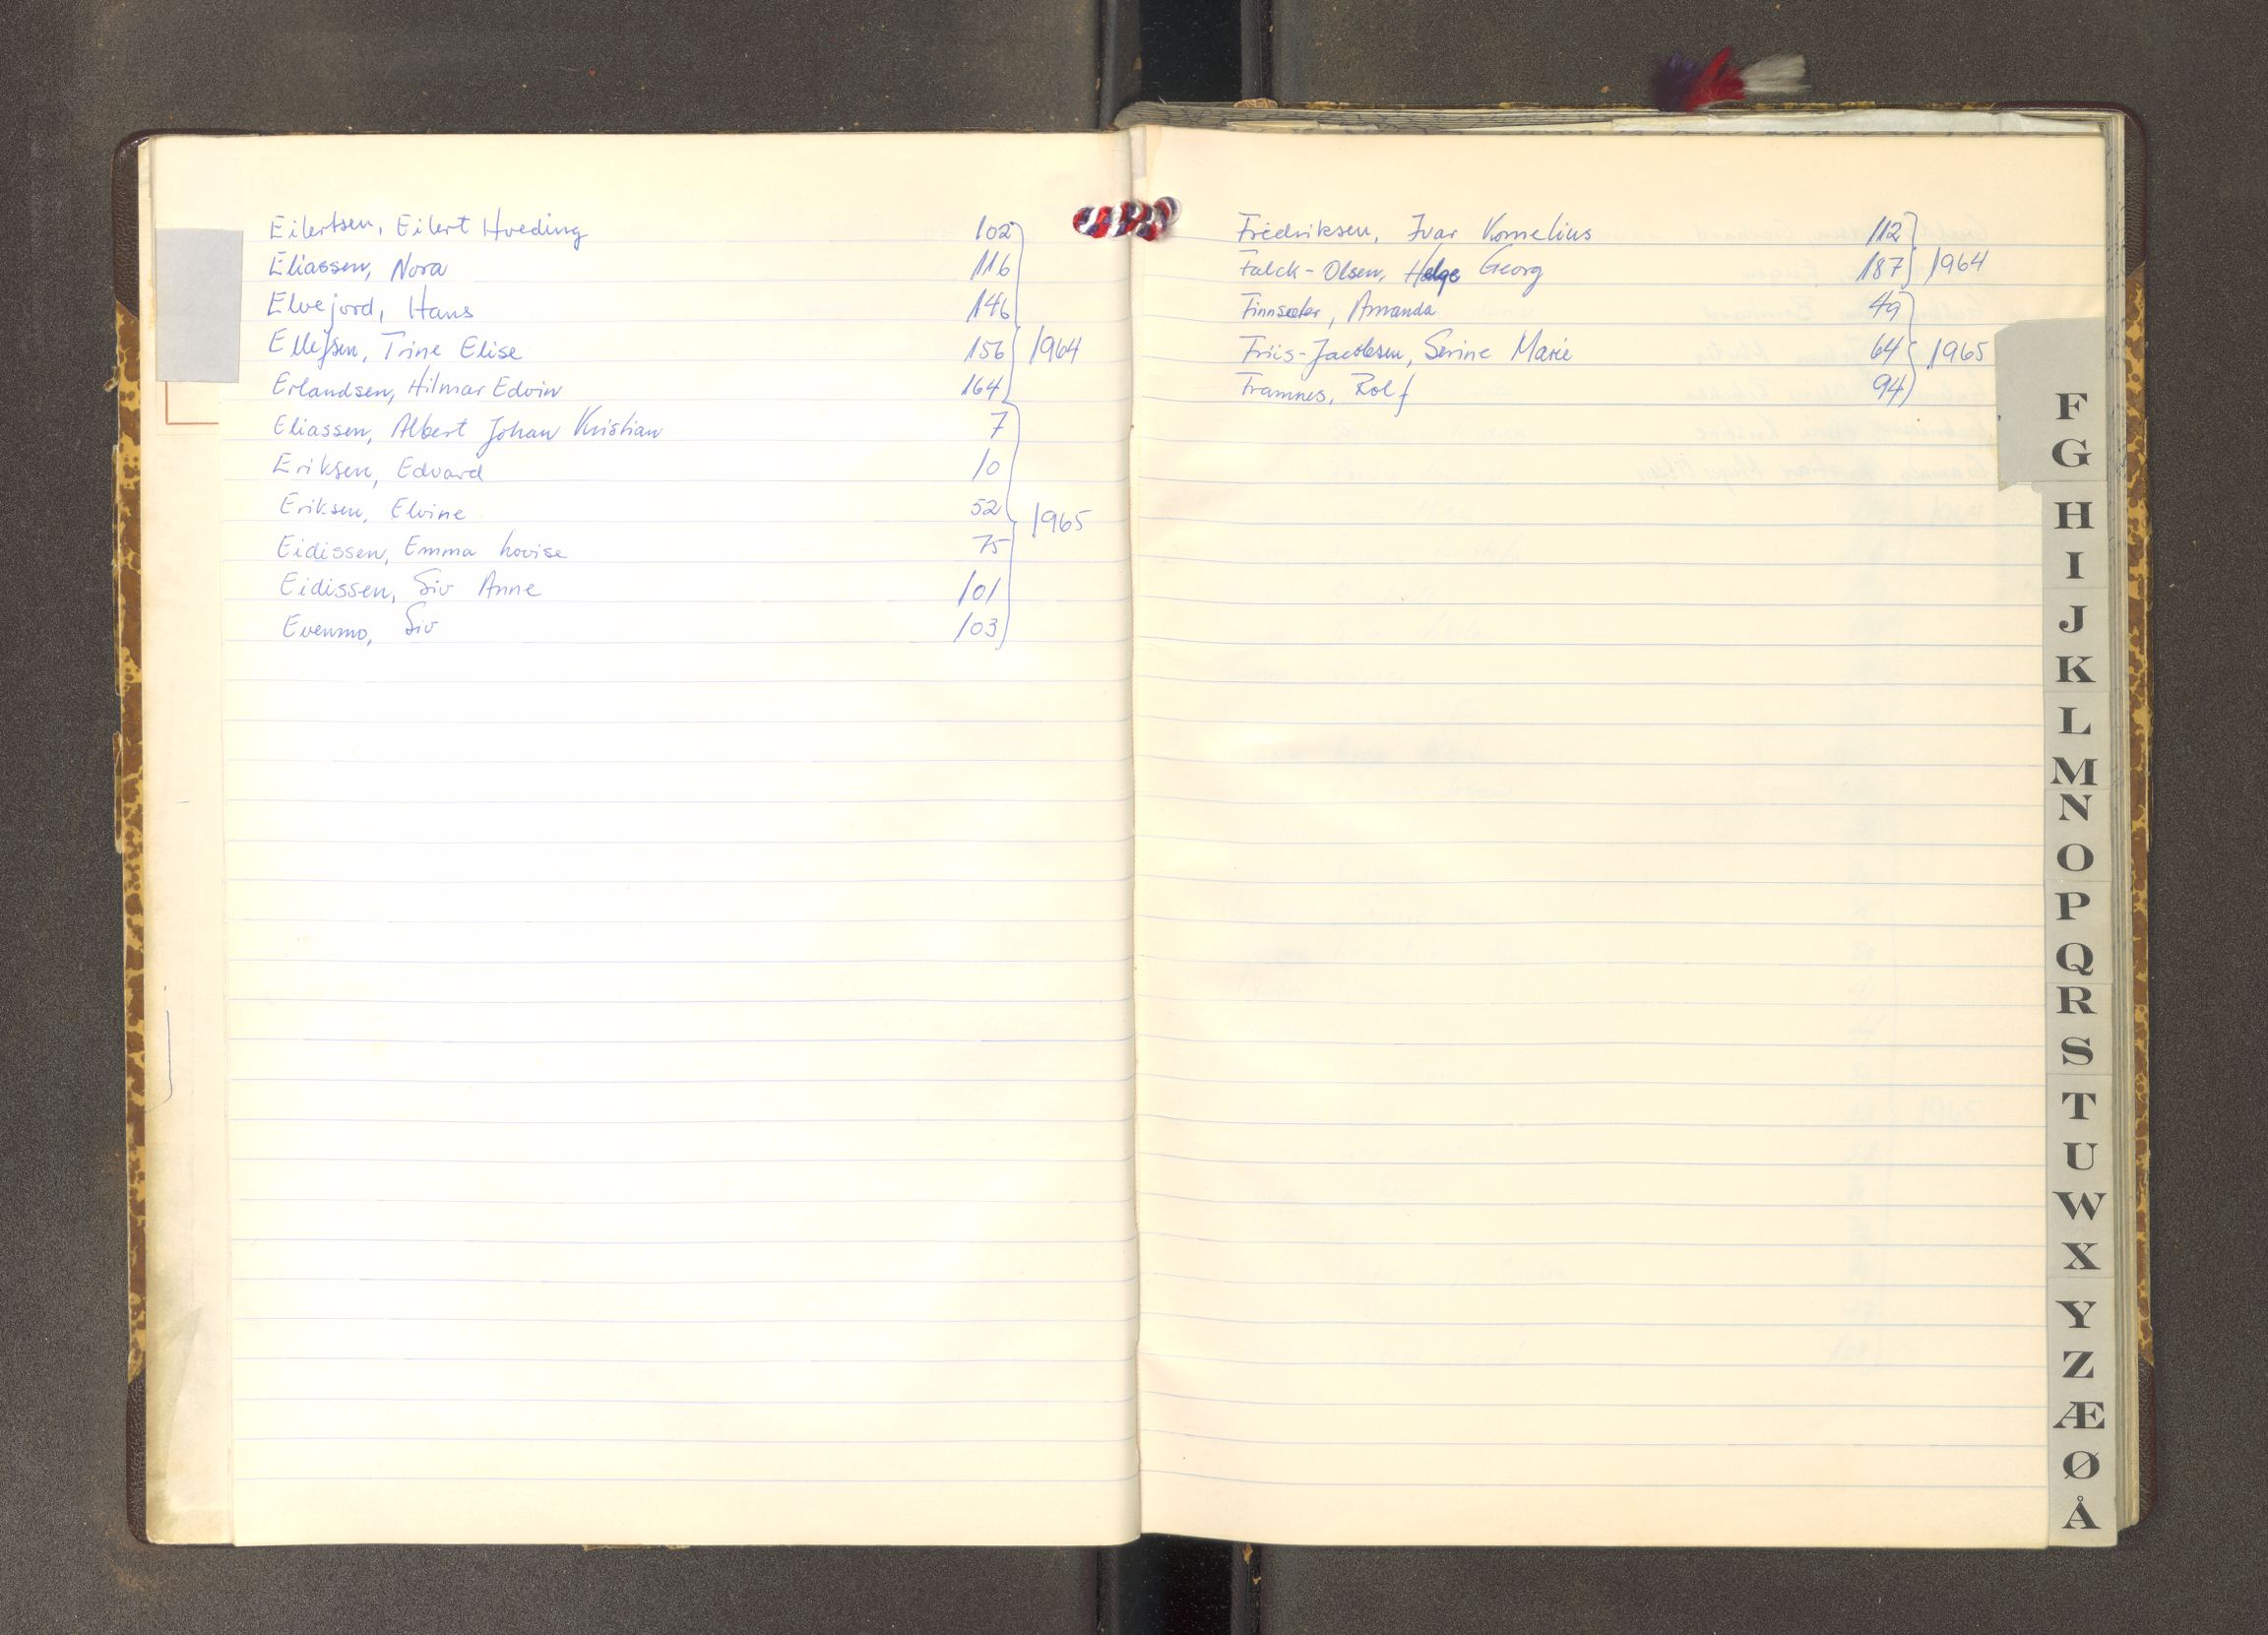 Eilertsen, Eilert Hveding 102
Eliassen, Nora 116
Elvejord, Hans 146
Ellefsen, Trine Elise 156 1964
Erlandsen, Hilmar Edvin 164
Eliassen, Albert Johan Kristian 7
Eriksen, Edvard 10
Eriksen, Elvine 52 1965
Eidissen, Emma Lovise 75
Eidissen, Siv Anne 101
Evenmo, Siv 103
Fredriksen, Ivar Kornelius 112
Falck-Olsen, Helge Georg 187 1964
Finnsæter, Amanda 49
Friis-Jacobsen, Serine Marie 64 1965
Framnes, Rolf 94
F
G
H
I
J
K
L
M
N
O
P
Q
R
S
T
U
W
X
Y
Z
Æ
Ø
Å